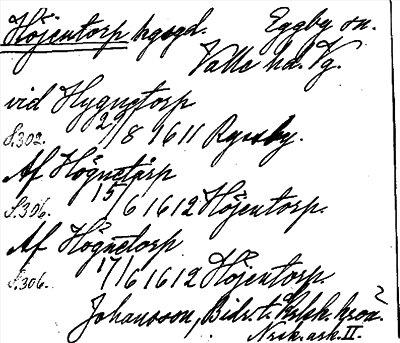 Höjentorp kgsgd. Eggby sn.
Valle hd. Vg.
vid Hyguetorp
S.302. 29/8 1611 Ryssby.
Af Högnetårp
S.306. 15/6 1612 Höjentorp.
Af Högnetorp
S.306. 17/6 1612 Höjentorp.
Johansson, Bidr. t. Kalm. krön.
N:sk. ark. II.